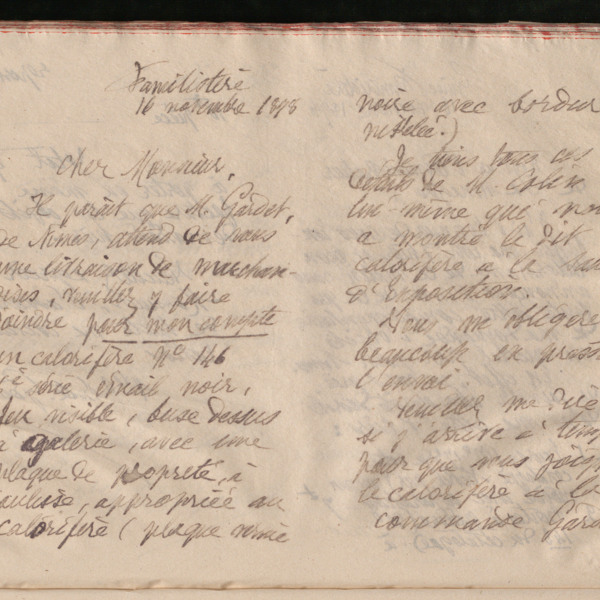 Familistère
16 novembre 1898
Cher Monsieur,
Il paraît que M. Gardet,
de Nîmes, attend de nous
une livraison de marchan-
dises, veuillez y faire
joindre pour mon compte
un calorifère N° 146
série émail noir,
feu visible, buse dessus
à galerie, avec une
plaque de propreté, à
coulisse, appropriée au
calorifère (plaque vernie
noire avec bordure
nickelée.)
Je tiens tous ces
détails de M. Colin
lui-même qui nous
a montré le dit
calorifère à la salle
d'Exposition.
Vous m'obligerez
beaucoup en pressant
l'envoi.
Veuillez me dire
si j'arrive à temps
pour que vous joigniez
le calorifère à la
commande Gardet